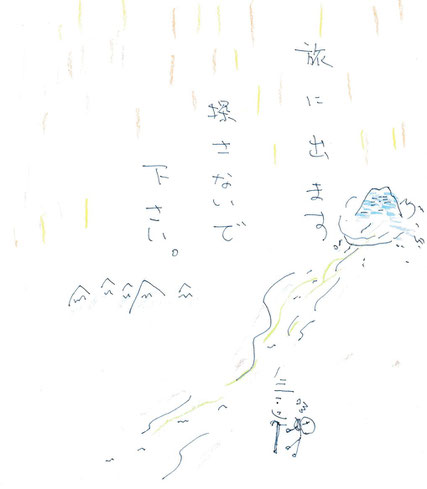 旅に出ます
探さないで
下さい。